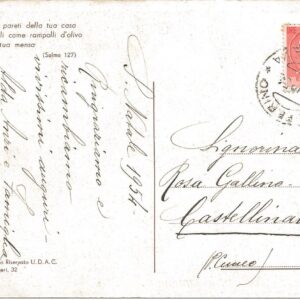 pareti della tua casa
li come rampolli d'olivo
tua mensa
(Salmo 127)
S. Natale 1954
Ringraziamo e
ricambiamo
vivissimi auguri
Alda Inere e Famiglia
Riservato U.D.A.C.
eri, 32
Signorina
Rosa Gallino
Castellina
(P. Cuneo)